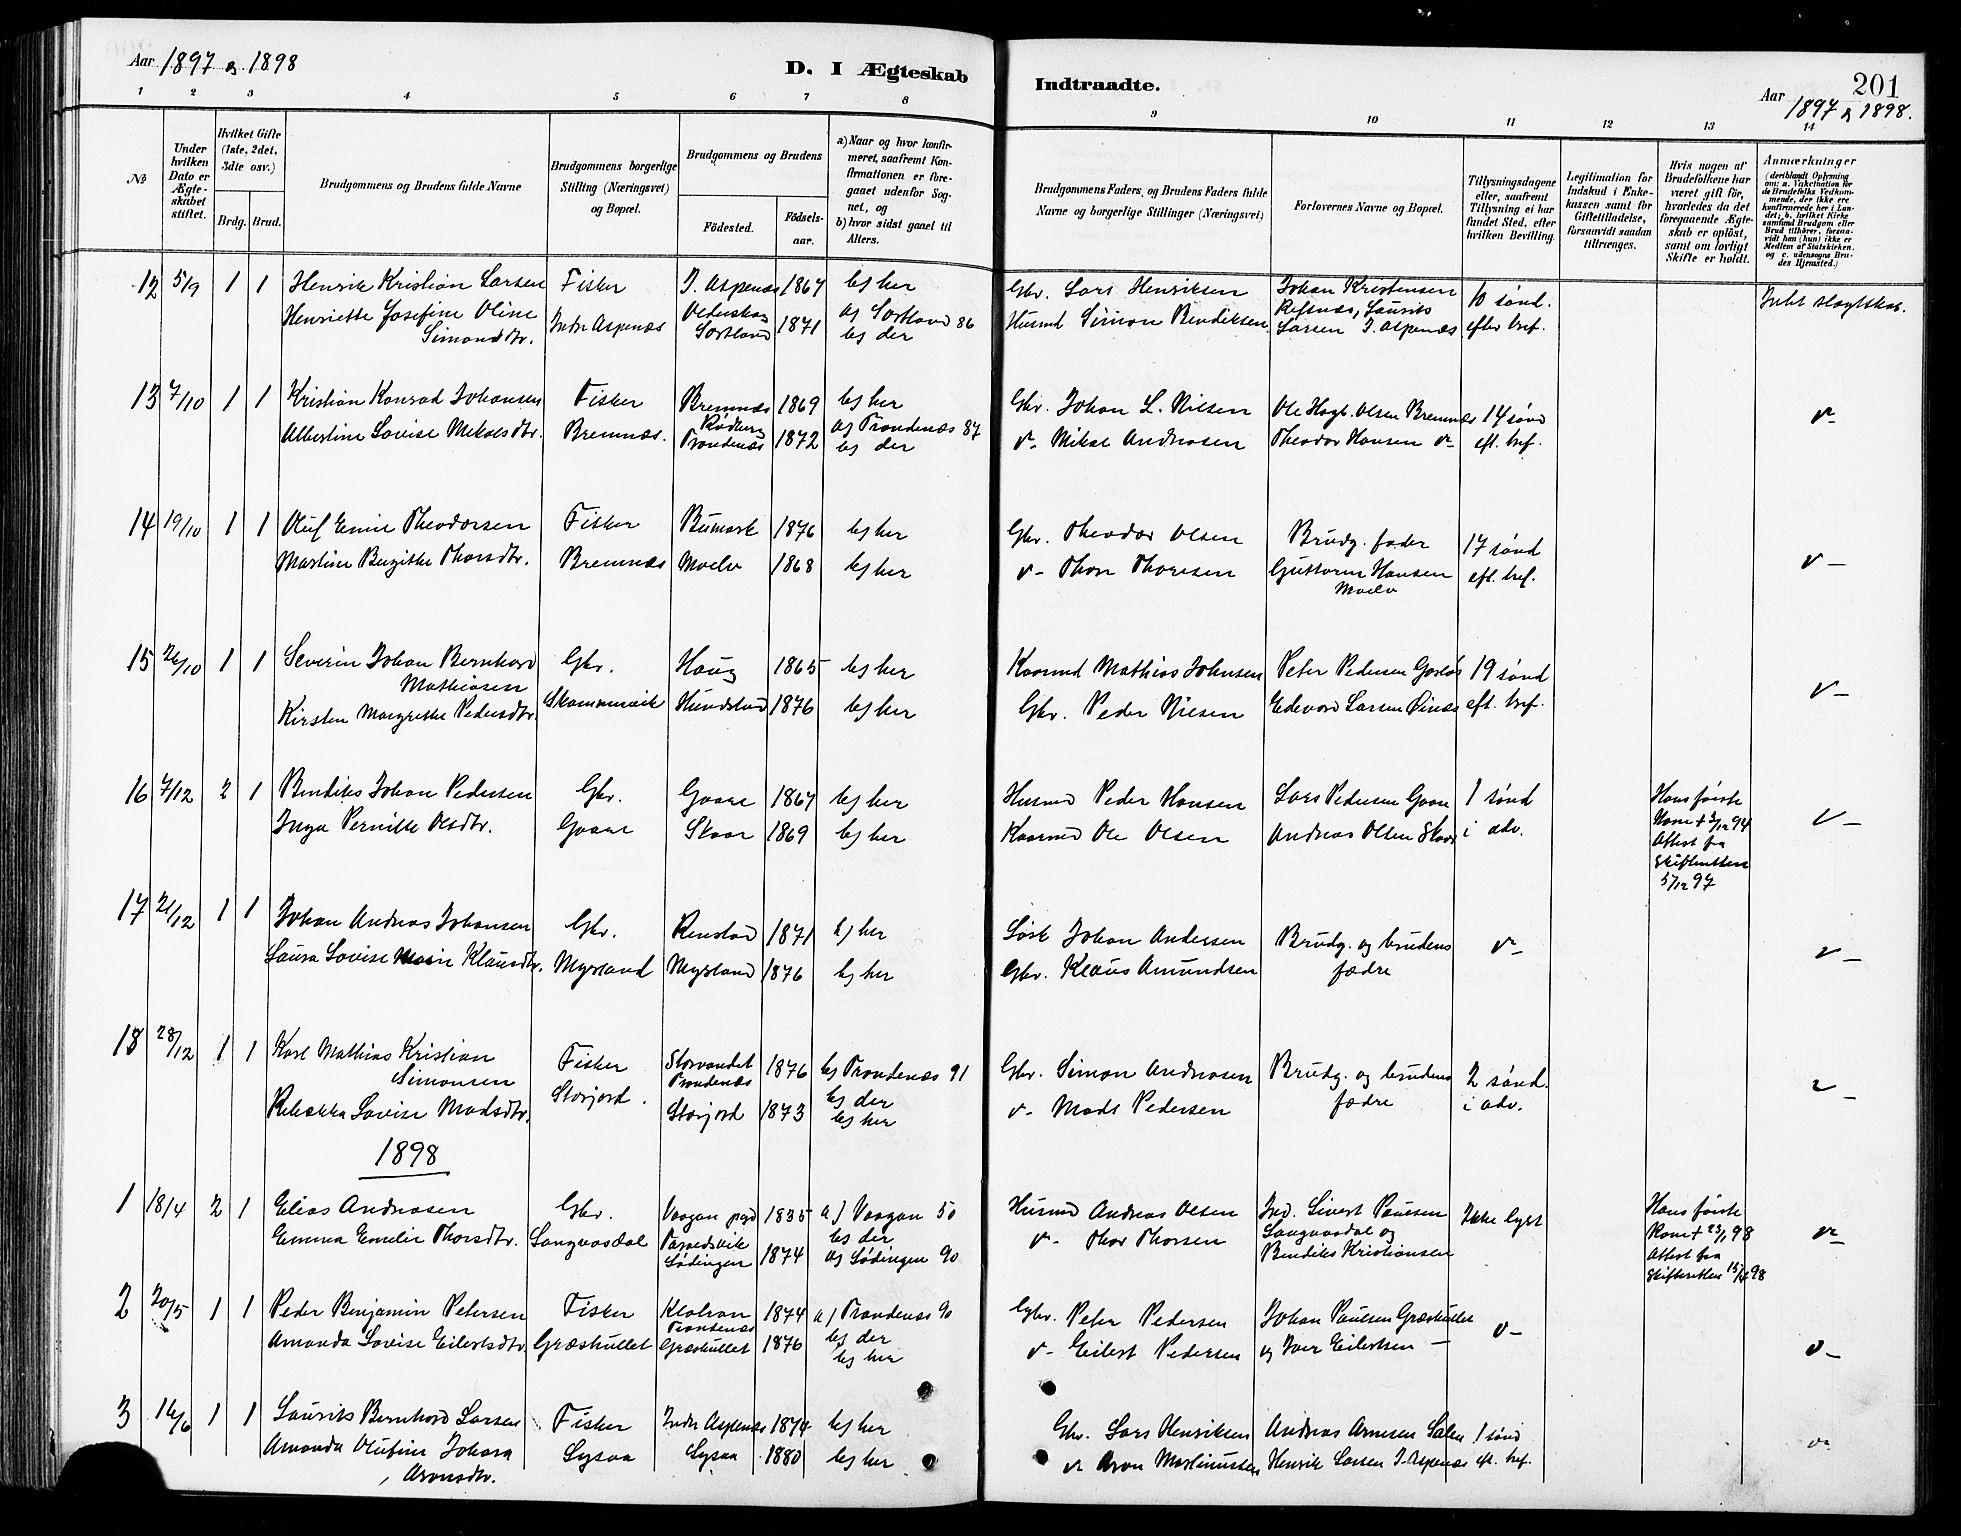 Aar 1897 og 1898
D. I Ægteskab
Indtraadte.
201
Aar 1897 & 1898.
1 2 3 4 5 6 7 8
9 10 11 12 13 14
№
Under hvilken Dato er Ægteskabet stiftet.
Hvilket Gifte (1ste, 2det, 3dte osv.)
Brdg. Brud.
Brudgommens og Brudens fulde Navne
Brudgommens borgerlige Stilling (Næringsvei) og Bopæl.
Brudgommens og Brudens
Födested.
Födselsaar.
a) Naar og hvor konfirmeret, saafremt Konfirmationen er foregaaet udenfor Sognet, og
b) hvor sidst gaaet til Alters.
Brudgommens Faders, og Brudens Faders fulde Navne og borgerlige Stillinger (Næringsvei)
Forlovernes Navne og Bopæl.
Tillysningsdagene eller, saafremt Tillysning ei har fundet Sted, efter hvilken Bevilling.
Legitimation for Indskud i Enkekassen samt for Giftetilladelse, forsaavidt saadan tiltrænges.
Hvis nogen af Brudefolkene har været gift før, hvorledes da det foregaaende Ægteskab er opløst, samt om lovligt Skifte er holdt.
Anmærkninger (deriblandt Oplysning om: a. Vakcination for de Brudefolks Vedkommende, der ikke ere konfirmerede her i Landet; b. hvilket Kirkesamfund Brudgom eller Brud tilhører, forsaavidt han (hun) ikke er Medlem af Statskirken. og c. udensogns Brudes Hjemsted.)
12 5/9 1 1 Henrik Kristian Larsen Fisker I. Aspenæs 1867 b) her Gbr. Lars Henriksen Johan Kristensen 10 sønd. Intet slægtskab.
Henriette Josefine Oline Indre Aspenæs Sortland 1871 a) Sortland 86 Husmd Simon Bendiksen Refsnæs, Laurits efter tref.
Simonsdtr. b) der Larsen I. Aspenæs
13 7/10 1 1 Kristian Konrad Johansen Fisker Bremnæs 1869 b) her Gbr. Johan L. Nilsen Ole Hagb. Olsen Bremnæs 14 sønd v-
Albertine Lovise Mikalsdtr. Bremnæs. Trondenæs 1872 a) Trondenæs 87 v- Mikal Andreasen Theodor Hansen v- eft. tref.
b) der
14 19/10 1 1 Oluf Emil Theodorsen Fisker Bumark 1876 b) her Gbr. Theodor Olsen Brudg. fader 17 sønd v-
Martine Birgitte Thorsdtr. Bremnæs Moelv 1868 b) her v- Thor Thoresen Guttorm Hansen eft. tref.
Moelv
15 26/10 1 1 Severin Johan Bernhard Gbr. Haug 1865 b) her Kaarmd Mathias Johnsen Peter Pedersen 19 sønd v-
Mathiasen
Kirsten Margrethe Pedersdtr. Skammenvik Hundstad 1876 b) her Gbr. Peder Nilsen Edevard Larsen eft. tref.
16 7/12 2 1 Bendiks Johan Pedersen Gbr. Gaare 1867 b) her Husmd Peder Hansen Lars Pedersen Gaare 1 sønd Hans første v-
Inga Pernille Olsdtr. Gaare Skaar 1869 b) her Kaarmd Ole Olsen Andreas Olsen Skaar i adv. Kone + 3/12 94
Attest fra
Skifteretten
5/12 97
17 21/12 1 1 Johan Andreas Johansen Gbr. Renstad 1871 b) her Løsk Johan Andersen Brudg. og brudens v- v-
Laura Lovise Marie Klausdtr. Myrland Myrland 1876 b) her Gbr. Klaus Amundsen fædre
18 28/12 1 1 Karl Mathias Kristian Fisker Storvandet 1876 b) Trondenæs 91 Gbr. Simon Andreasen Brudg. og brudens 2 sønd. v-
Simonsen Trondenæs b) der
Rebekka Lovise Madsdtr. Storjord. Storjord 1873 b) her v- Mads Pedersen fædre i adv.
1898
1 18/4 2 1 Elias Andreasen Gbr. Vaagan 1835 a) Vaagan 50 Husmd Andreas Olsen Ind. Sivert Paulsen Ikke lyst Hans første v-
b) der
Emma Emelie Thorsdtr. Langvasdal Lødingen 1874 a) Lødingen 90 v- Thor Thorsen Langvasdal og Kone + 23/1 98
Bendiks Kristiansen Attest fra
Skifteretten 15/4 98
2 20/5 1 1 Peder Benjamin Petersen Fisker 1874 a) Trondenæs 90 Gbr. Peter Pedersen Johan Paulsen Græshullet v- v-
Trondenæs b) der
Amanda Lovise Eilertsdtr. Græshullet Græshullet 1876 b) her v- Eilert Pedersen og Iver Eilertsen —
3 16/6 1 1 Laurits Bernhard Larsen Fisker Indre Aspenæs 1874 b) her Gbr. Lars Henriksen Andreas Arnesen 1 sønd v-
Amanda Olufine Johara Lysaa Lysaa 1880 b) her v- Aron Martinussen Henrik Larsen I. Aspenæs eft. tref.
Aronsdtr.